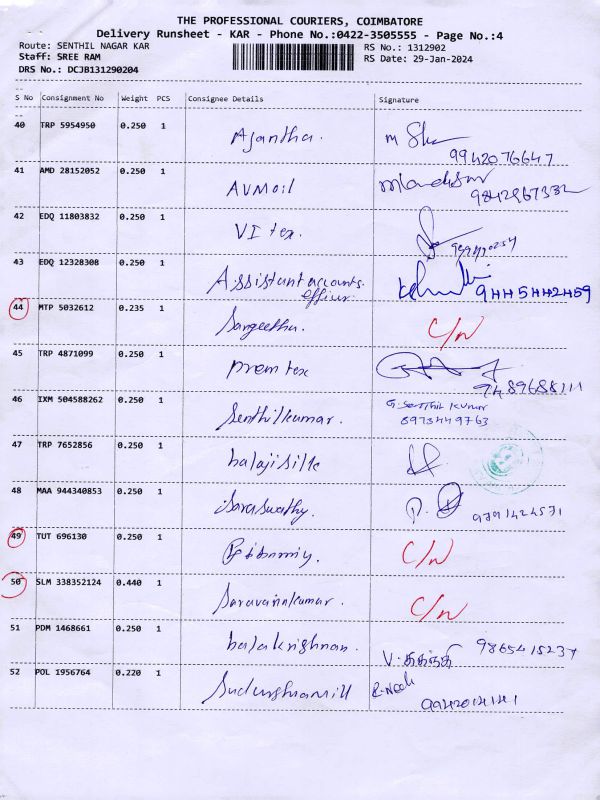 THE PROFESSIONAL COURIERS, COIMBATORE
Delivery Runsheet - KAR - Phone No.:0422-3505555 - Page No.:4
Route: SENTHIL NAGAR KAR RS No.: 1312902
Staff: SREE RAM RS Date: 29-Jan-2024
DRS No.: DCJB131290204
S No Consignment No Weight PCS Consignee Details Signature
40 TRP 5954950 0.250 1 Ajantha. 9942076647
41 AMD 28152052 0.250 1 AVMoil
42 EDQ 11803832 0.250 1 VI tex.
43 EDQ 12328308 0.250 1 Assistant accounts. 9445442459
officer.
44 MTP 5032612 0.235 1 Sangeetha. C/N
45 TRP 4871099 0.250 1 prem tex
46 IXM 504588262 0.250 1 Senthilkumar. G. Senthil Kumar
8973449763
47 TRP 7652856 0.250 1 balajisilk
48 MAA 944340853 0.250 1 Saraswathy. 9791424571
49 TUT 696130 0.250 1 C/N
50 SLM 338352124 0.440 1 Saravannkumar. C/N
51 PDM 1468661 0.250 1 balakrishnan. 9865415237
52 POL 1956764 0.220 1 9942014141